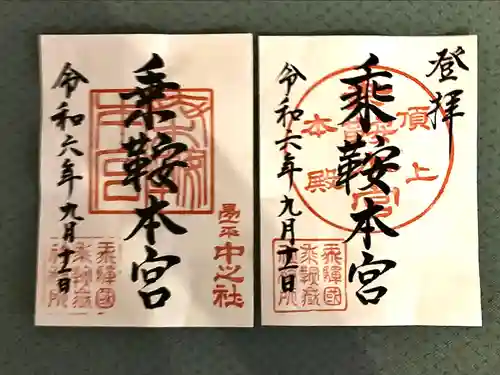 乗鞍本宮
令和六年九月十一日
畳平
中之社
飛騨國
乗鞍嶽
登拝
乗鞍本宮
令和六年九月十一日
頂上
本殿
飛騨國
乗鞍嶽